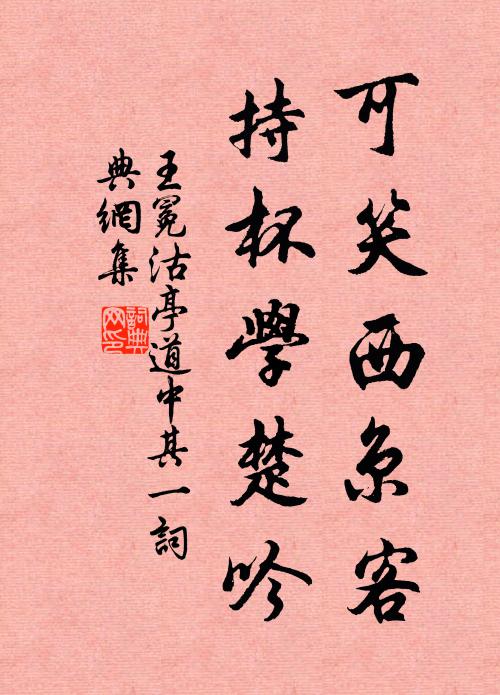 可笑西京客
持杯學楚吟
王冕沽亭道中其一詞
典網集
詞典网印